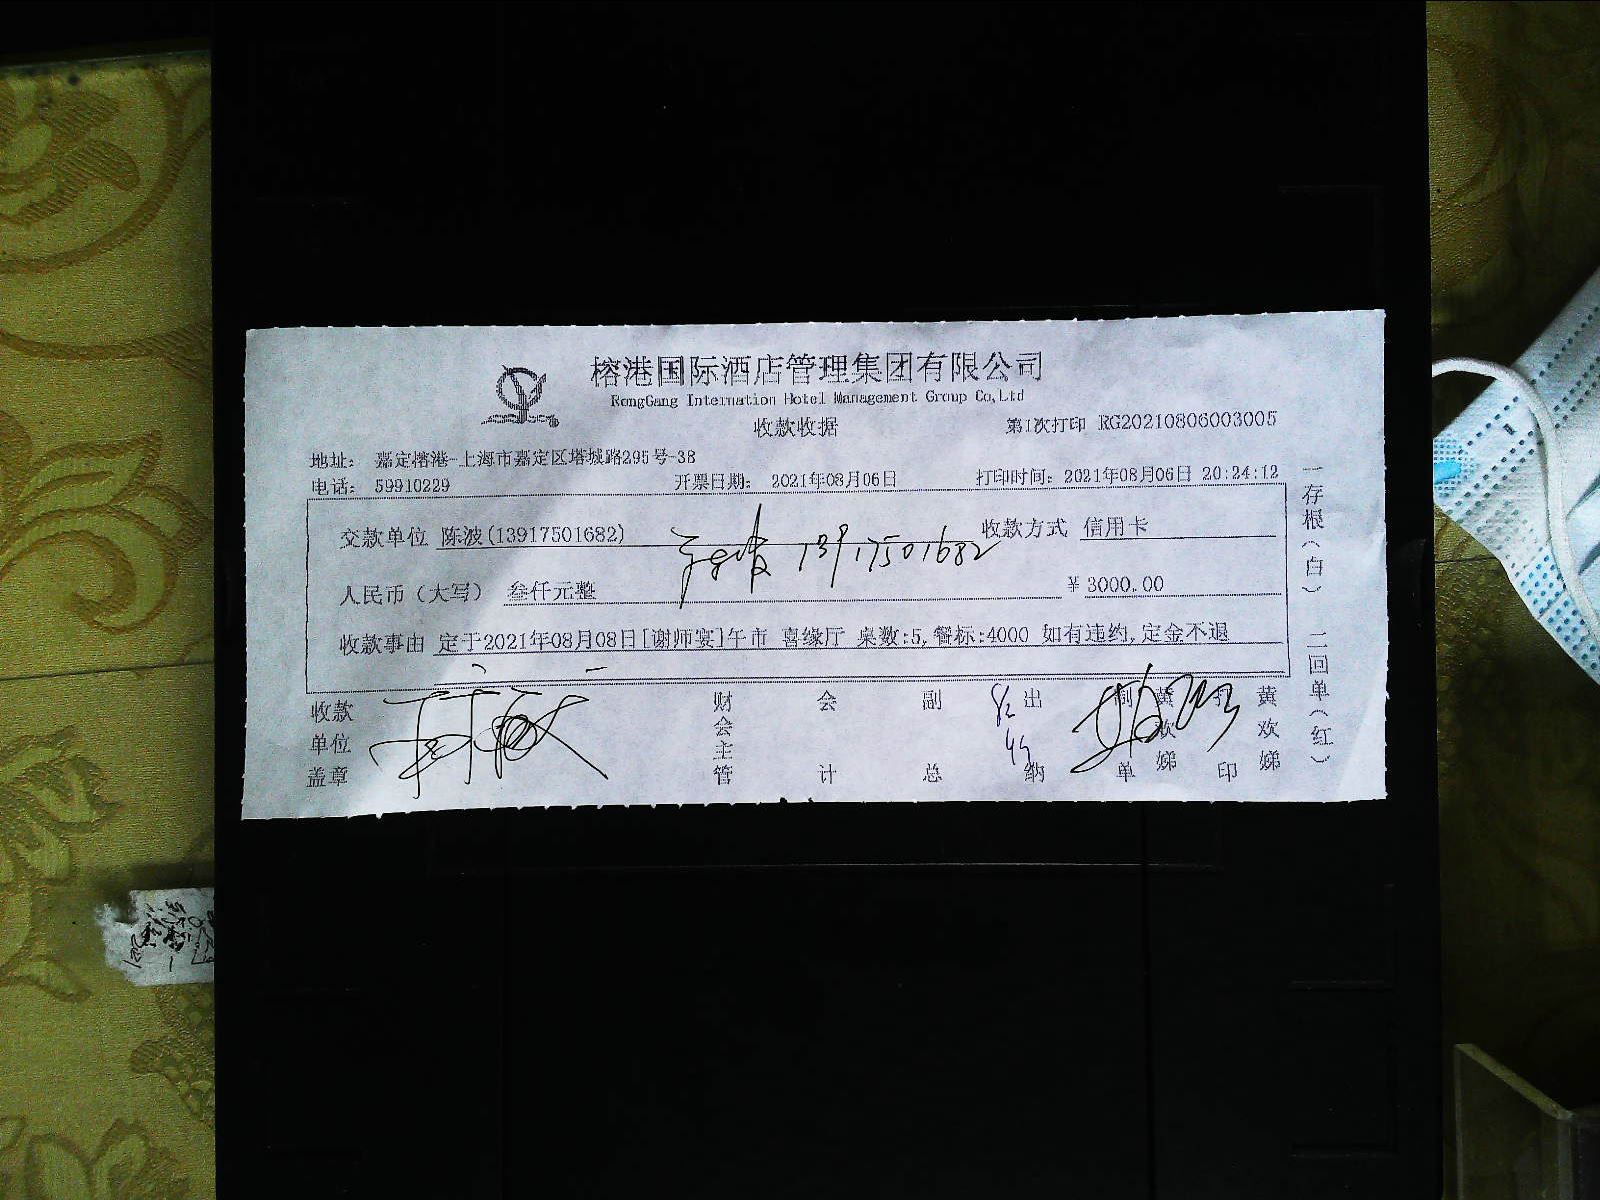 榕港国际酒店管理集团有限公司
RongGang Internation Hotel Management Group Co,Ltd
收款收据
第1次打印 RG20210806003005
地址： 嘉定榕港-上海市嘉定区塔城路295号-38
电话： 59910229 开票日期： 2021年08月06日 打印时间：2021年08月06日 20:24:12
交款单位 陈波(13917501682) 13917501682 收款方式 信用卡
人民币（大写） 叁仟元整 ¥3000.00
收款事由 定于2021年08月08日[谢师宴]午市 喜缘厅 桌数:5,餐标:4000 如有违约,定金不退
收款单位盖章 财会主管 会计 副总 出纳 制单 黄欢娣 打印 黄欢娣
一存根（白） 二回单（红）